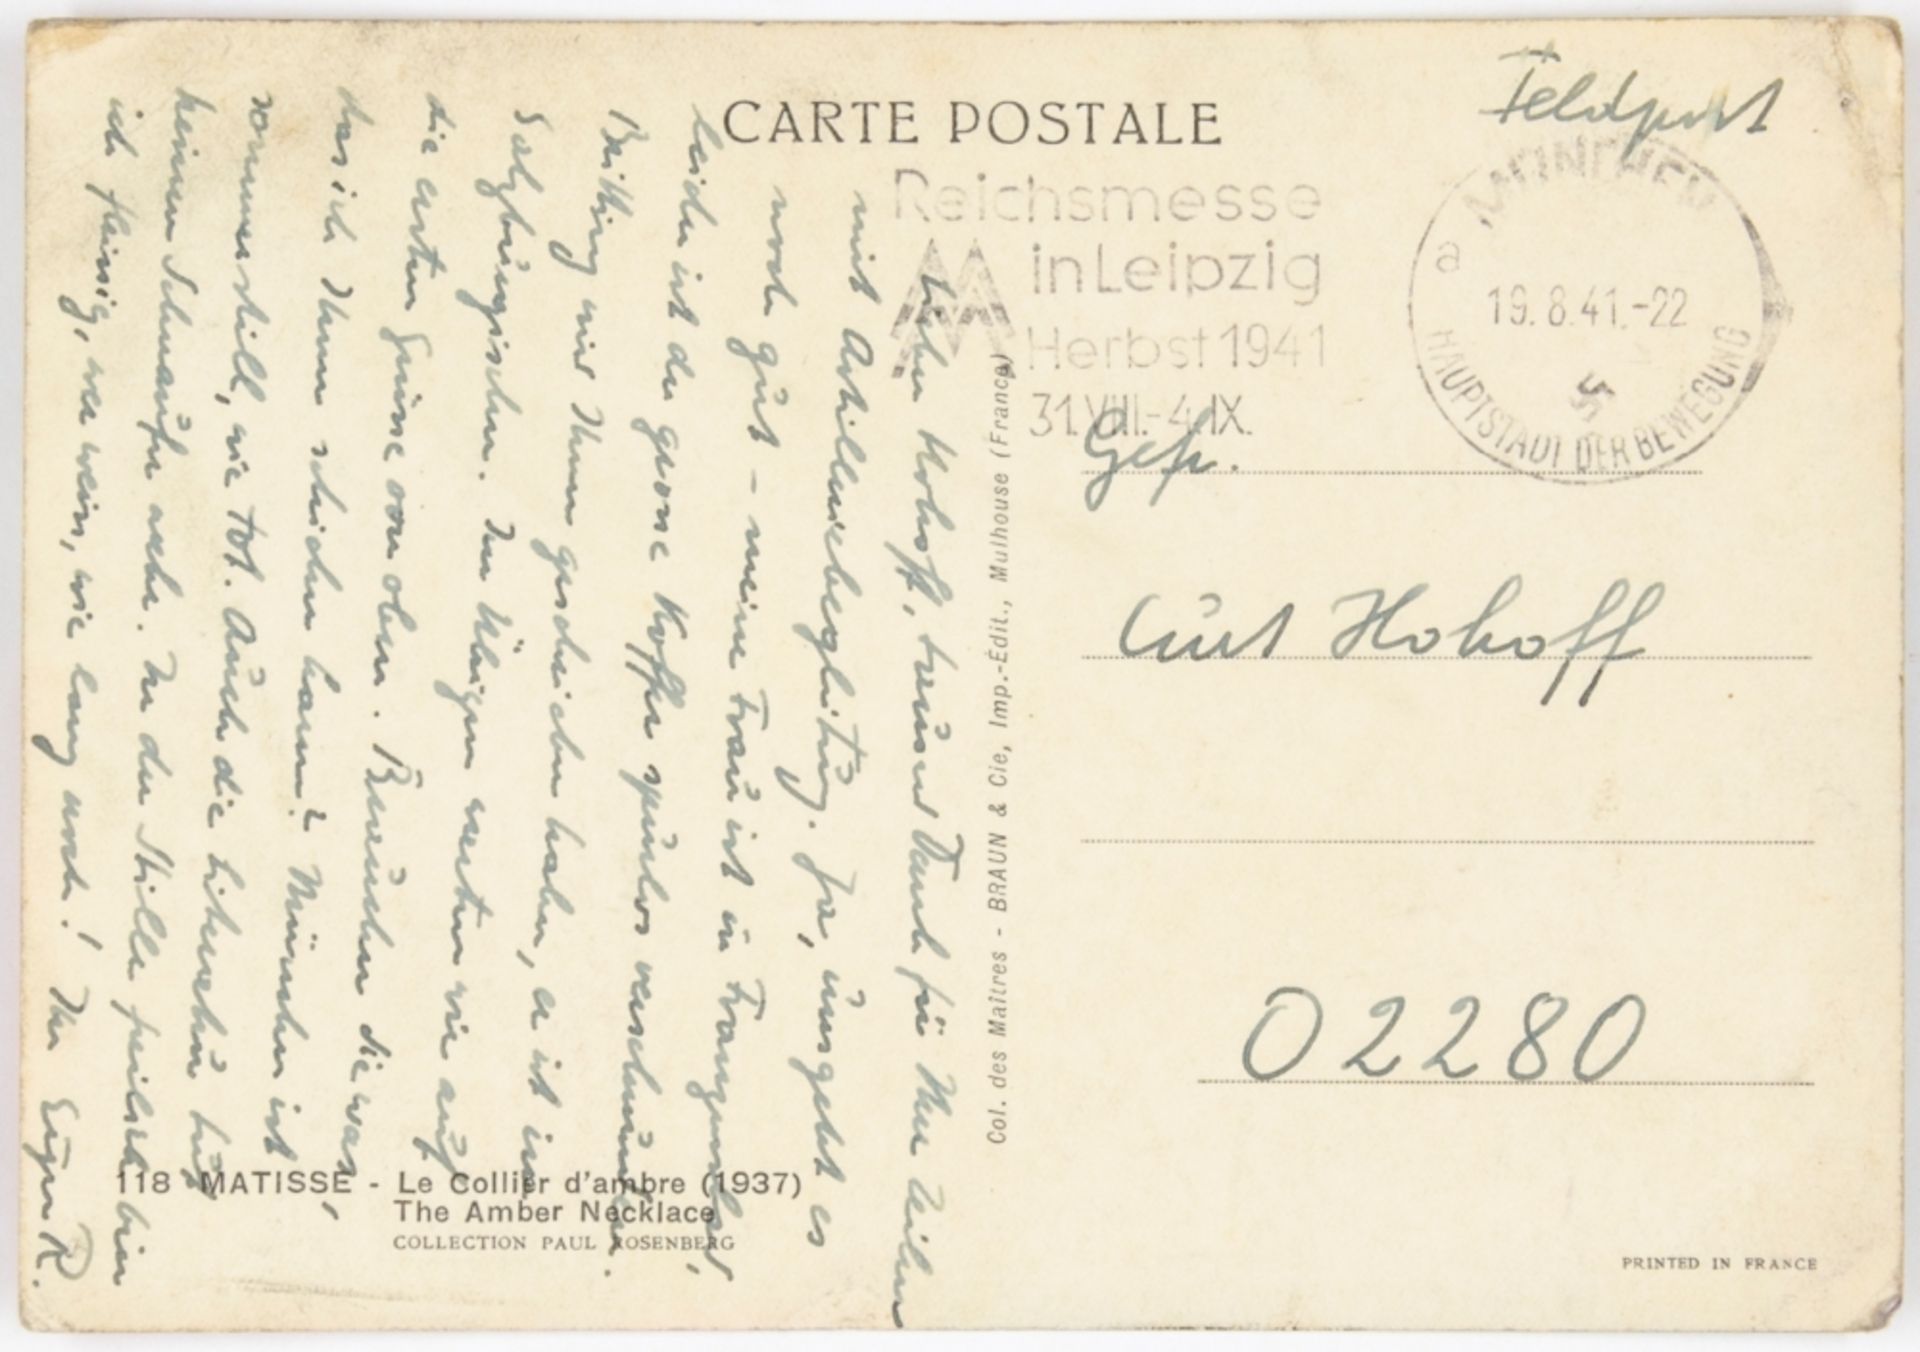 CARTE POSTALE
Feldpost
Reichsmesse
in Leipzig
Herbst 1941
31.VIII.-4.IX.
MÜNCHEN
a
19.8.41.-22
HAUPTSTADT DER BEWEGUNG
Gefr.
Curt Hohoff
02280
Lieber Hohoff, tausend Dank für Ihre Zeilen
mit Artilleriebegleitung. Ja, uns geht es
noch gut – meine Frau ist in Frauenwörth,
leider ist der grosse Koffer spurlos verschwunden.
Britting wird Ihnen geschrieben haben, er ist im
Salzburgischen. Im Übrigen warten wir auf
die ersten Grüsse von oben. Brauchen Sie was,
das ich Ihnen schicken kann? München ist
sommerstill, wie tot. Auch die Literatur tut
keinen Schnaufer mehr. In der Stille bin
ich fleissig, wer weiss, wie lang noch! Ihr Eugen R.
Col. des Maîtres - BRAUN & Cie, Imp.-Édit., Mulhouse (France)
118 MATISSE - Le Collier d'ambre (1937)
The Amber Necklace
COLLECTION PAUL ROSENBERG
PRINTED IN FRANCE